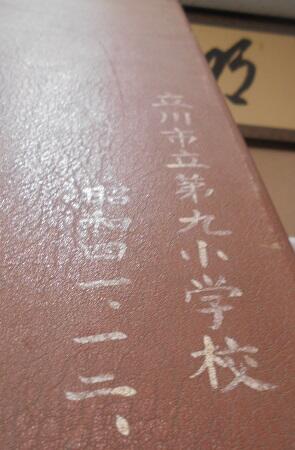 立川市立第九小学校
昭和四一、一二、